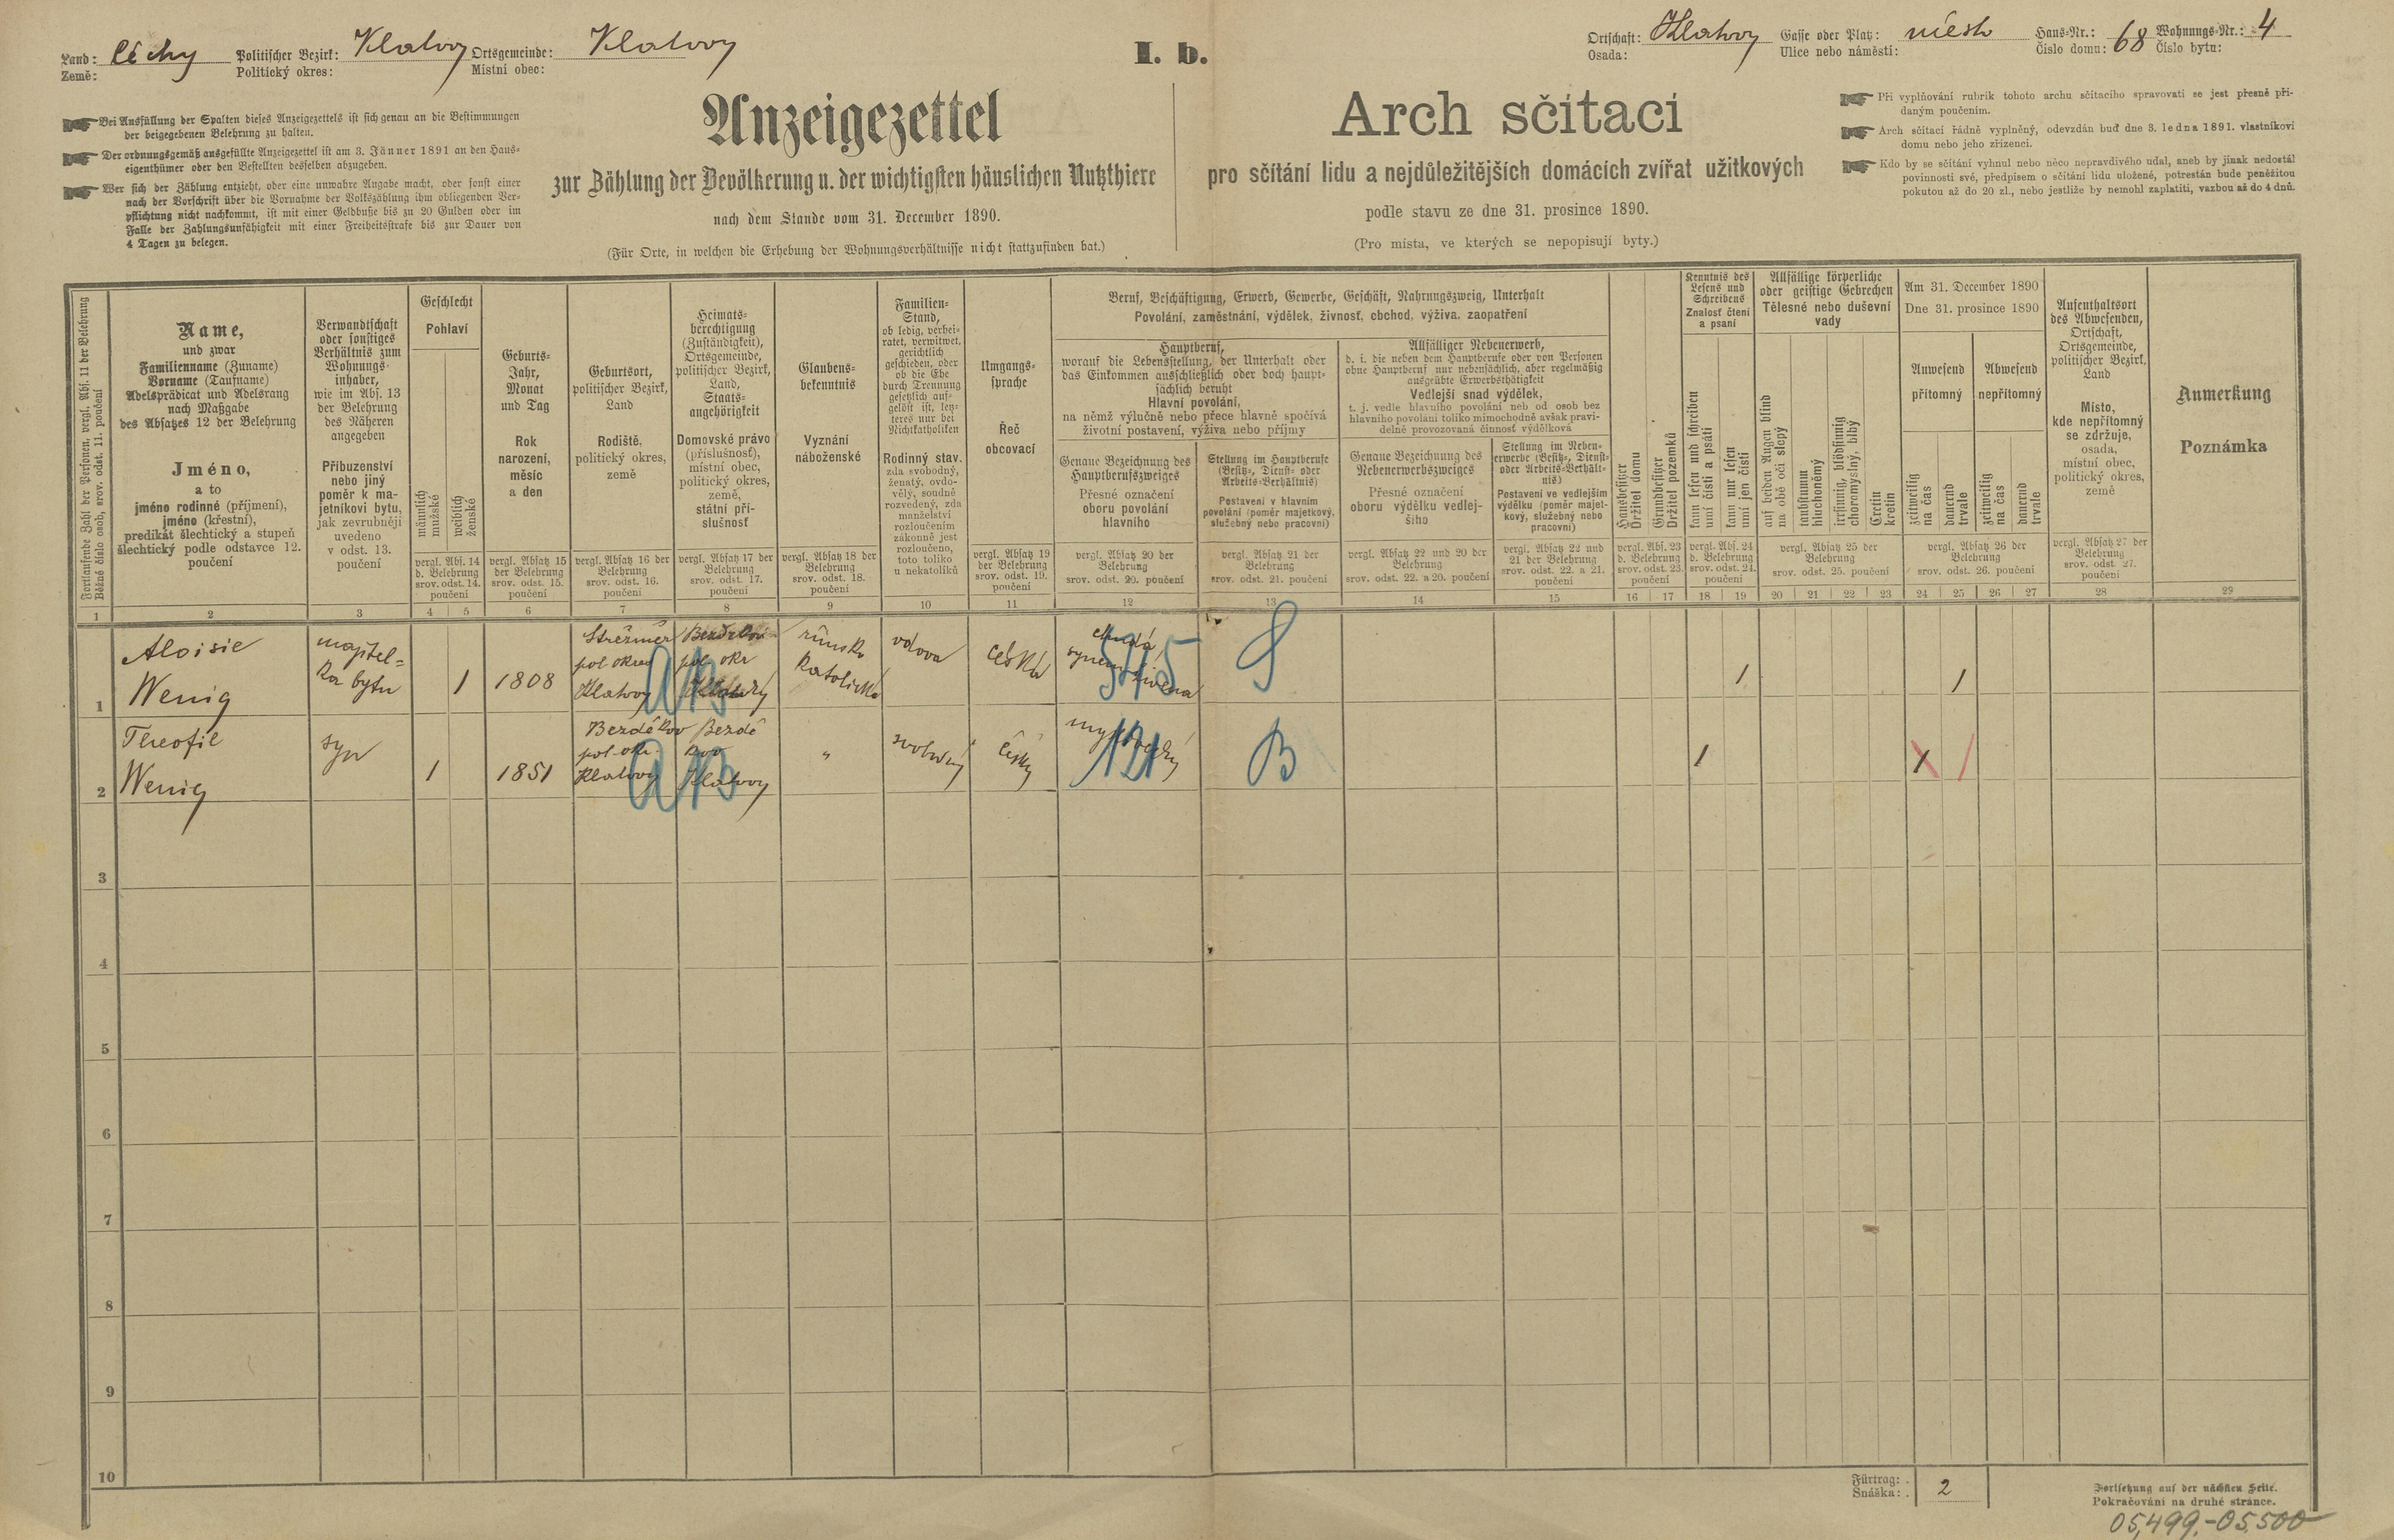 Land: Čechy Politischer Bezirk: Klatovy Ortsgemeinde: Klatovy
Země: Politický okres: Místní obec:
I. b.
Ortschaft: Klatovy Gasse oder Platz: město Haus-Nr.: 68 Wohnungs-Nr.: 4
Osada: Ulice nebo náměstí: Číslo domu: Číslo bytu:
Bei Ausfüllung der Spalten dieses Anzeigezettels ist sich genau an die Bestimmungen
der beigegebenen Belehrung zu halten.
Der ordnungsgemäß ausgefüllte Anzeigezettel ist am 3. Jänner 1891 an den Haus-
eigenthümer oder den Bestellten desselben abzugeben.
Wer sich der Zählung entzieht, oder eine unwahre Angabe macht, oder sonst einer
nach der Vorschrift über die Vornahme der Volkszählung ihm obliegenden Ver-
pflichtung nicht nachkommt, ist mit einer Geldbuße bis zu 20 Gulden oder im
Falle der Zahlungsunfähigkeit mit einer Freiheitsstrafe bis zur Dauer von
4 Tagen zu belegen.
Anzeigezettel
zur Zählung der Bevölkerung u. der wichtigsten häuslichen Nutzthiere
nach dem Stande vom 31. December 1890.
(Für Orte, in welchen die Erhebung der Wohnungsverhältnisse nicht stattzufinden hat.)
Arch sčítací
pro sčítání lidu a nejdůležitějších domácích zvířat užitkových
podle stavu ze dne 31. prosince 1890.
(Pro místa, ve kterých se nepopisují byty.)
Při vyplňování rubrik tohoto archu sčítacího spravovati se jest přesně při-
daným poučením.
Arch sčítací řádně vyplněný, odevzdán buď dne 3. ledna 1891. vlastníkovi
domu nebo jeho zřízenci.
Kdo by se sčítání vyhnul nebo něco nepravdivého udal, aneb by jinak nedostál
povinnosti své, předpisem o sčítání lidu uložené, potrestán bude peněžitou
pokutou až do 20 zl., nebo jestliže by nemohl zaplatiti, vazbou až do 4 dnů.
Fortlaufende Zahl der Personen, vergl. Abs. 11 der Belehrung
Běžné číslo osob, srov. odst. 11. poučení
1
Name,
und zwar
Familienname (Zuname)
Vorname (Taufname)
Adelsprädicat und Adelsrang
nach Maßgabe
des Absatzes 12 der Belehrung
Jméno,
a to
jméno rodinné (příjmení),
jméno (křestní),
predikát šlechtický a stupeň
šlechtický podle odstavce 12.
poučení
2
Verwandtschaft
oder sonstiges
Verhältnis zum
Wohnungs-
inhaber,
wie im Abs. 13
der Belehrung
des Näheren
angegeben
Příbuzenství
nebo jiný
poměr k ma-
jetníkovi bytu,
jak zevrubněji
uvedeno
v odst. 13.
poučení
3
Geschlecht
Pohlaví
männlich
mužské
weiblich
ženské
vergl. Abs. 14
d. Belehrung
srov. odst. 14.
poučení
4 5
Geburts-
Jahr,
Monat
und Tag
Rok
narození,
měsíc
a den
vergl. Absatz 15
der Belehrung
srov. odst. 15.
poučení
6
Geburtsort,
politischer Bezirk,
Land
Rodiště,
politický okres,
země
vergl. Absatz 16 der
Belehrung
srov. odst. 16.
poučení
7
Heimats-
berechtigung
(Zuständigkeit),
Ortsgemeinde,
politischer Bezirk,
Land,
Staats-
angehörigkeit
Domovské právo
(příslušnost),
místní obec,
politický okres,
země,
státní pří-
slušnost
vergl. Absatz 17 der
Belehrung
srov. odst. 17.
poučení
8
Glaubens-
bekenntnis
Vyznání
náboženské
vergl. Absatz 18 der
Belehrung
srov. odst. 18.
poučení
9
Familien-
Stand,
ob ledig, verhei-
ratet, verwitwet,
gerichtlich
geschieden, oder
ob die Ehe
durch Trennung
gesetzlich auf-
gelöst ist, letz-
teres nur bei
Nichtkatholiken
Rodinný stav,
zda svobodný,
ženatý, ovdo-
vělý, soudně
rozvedený, zda
manželství
rozloučením
zákonně jest
rozloučeno,
toto toliko
u nekatolíků
10
Umgangs-
sprache
Řeč
obcovací
vergl. Absatz 19
der Belehrung
srov. odst. 19.
poučení
11
Beruf, Beschäftigung, Erwerb, Gewerbe, Geschäft, Nahrungszweig, Unterhalt
Povolání, zaměstnání, výdělek, živnosť, obchod, výživa, zaopatření
Hauptberuf,
worauf die Lebensstellung, der Unterhalt oder
das Einkommen ausschließlich oder doch haupt-
sächlich beruht
Hlavní povolání,
na němž výlučně nebo přece hlavně spočívá
životní postavení, výživa nebo příjmy
Genaue Bezeichnung des
Hauptberufszweiges
Přesné označení
oboru povolání
hlavního
vergl. Absatz 20 der
Belehrung
srov. odst. 20. poučení
12
Stellung im Hauptberufe
(Besitz-, Dienst- oder
Arbeits-Verhältnis)
Postavení v hlavním
povolání (poměr majetkový,
služebný nebo pracovní)
vergl. Absatz 21 der
Belehrung
srov. odst. 21. poučení
13
Allfälliger Nebenerwerb,
d. i. die neben dem Hauptberufe oder von Personen
ohne Hauptberuf nur nebensächlich, aber regelmäßig
ausgeübte Erwerbsthätigkeit
Vedlejší snad výdělek,
t. j. vedle hlavního povolání neb od osob bez
hlavního povolání toliko mimochodně avšak pravi-
delně provozovaná činnosť výdělková
Genaue Bezeichnung des
Nebenerwerbszweiges
Přesné označení
oboru výdělku vedlej-
šího
vergl. Absatz 22 und 20 der
Belehrung
srov. odst. 22. a 20. poučení
14
Stellung im Neben-
erwerbe (Besitz-, Dienst-
oder Arbeits-Verhält-
nis)
Postavení ve vedlejším
výdělku (poměr majet-
kový, služebný nebo
pracovní)
vergl. Absatz 22 und
21 der Belehrung
srov. odst. 22. a 21.
poučení
15
Hausbesitzer
Držitel domu
Grundbesitzer
Držitel pozemků
vergl. Abs. 23
d. Belehrung
srov. odst. 23.
poučení
16 17
Kenntnis des
Lesens und
Schreibens
Znalosť čtení
a psaní
kann lesen und schreiben
umí čísti a psáti
kann nur lesen
umí jen čísti
vergl. Abs. 24
d. Belehrung
srov. odst. 24.
poučení
18 19
Allfällige körperliche
oder geistige Gebrechen
Tělesné nebo duševní
vady
auf beiden Augen blind
na obě oči slepý
taubstumm
hluchoněmý
irrsinnig, blödsinnig
choromyslný, blbý
Cretin
kretin
vergl. Absatz 25 der
Belehrung
srov. odst. 25. poučení
20 21 22 23
Am 31. December 1890
Dne 31. prosince 1890
Anwesend
přítomný
Abwesend
nepřítomný
zeitweilig
na čas
dauernd
trvale
zeitweilig
na čas
dauernd
trvale
vergl. Absatz 26 der
Belehrung
srov. odst. 26. poučení
24 25 26 27
Aufenthaltsort
des Abwesenden,
Ortschaft,
Ortsgemeinde,
politischer Bezirk,
Land
Místo,
kde nepřítomný
se zdržuje,
osada,
místní obec,
politický okres,
země
vergl. Absatz 27 der
Belehrung
srov. odst. 27.
poučení
28
Anmerkung
Poznámka
29
1
Aloisie
Wenig
majitel=
ka bytu
1
1808
Střežiměř
pol okres
Klatovy
pol okr
Klatovy
římsko
katolická
vdova
česká
chudá
synem živena
545
1
1
2
Theofil
Wenig
syn
1
1851
Bezděkov
pol. okr.
Klatovy
Bezdě
kov
Klatovy
"
svobodný
český
121
B
1
1
3
4
5
6
7
8
9
10
Fürtrag: 2
Snáška:
Fortsetzung auf der nächsten Seite.
Pokračování na druhé stránce.
05,499.-05,500